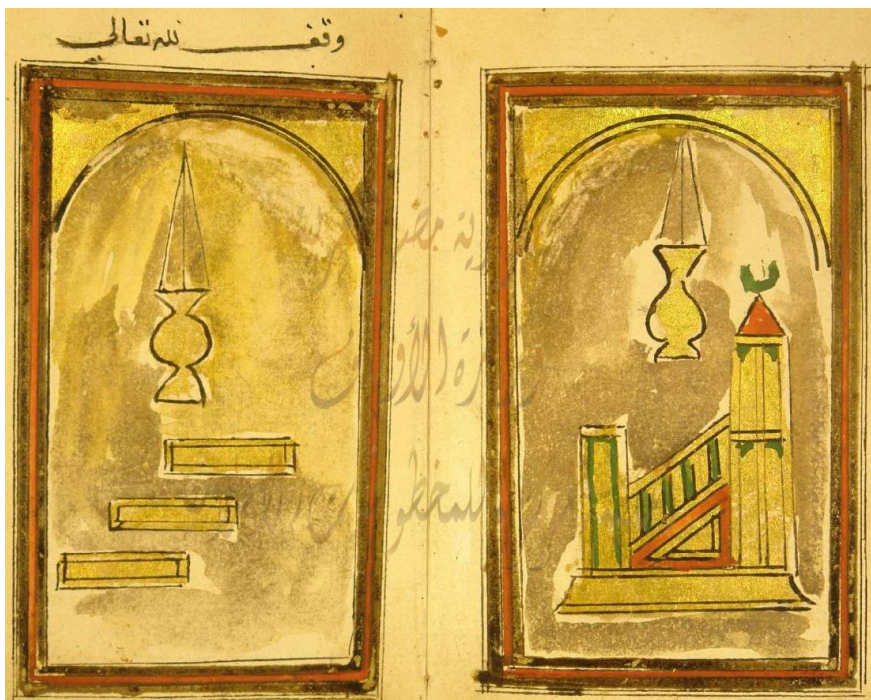 وقف لله تعالي
مصر
وزارة الأوقاف
للمخطوطات